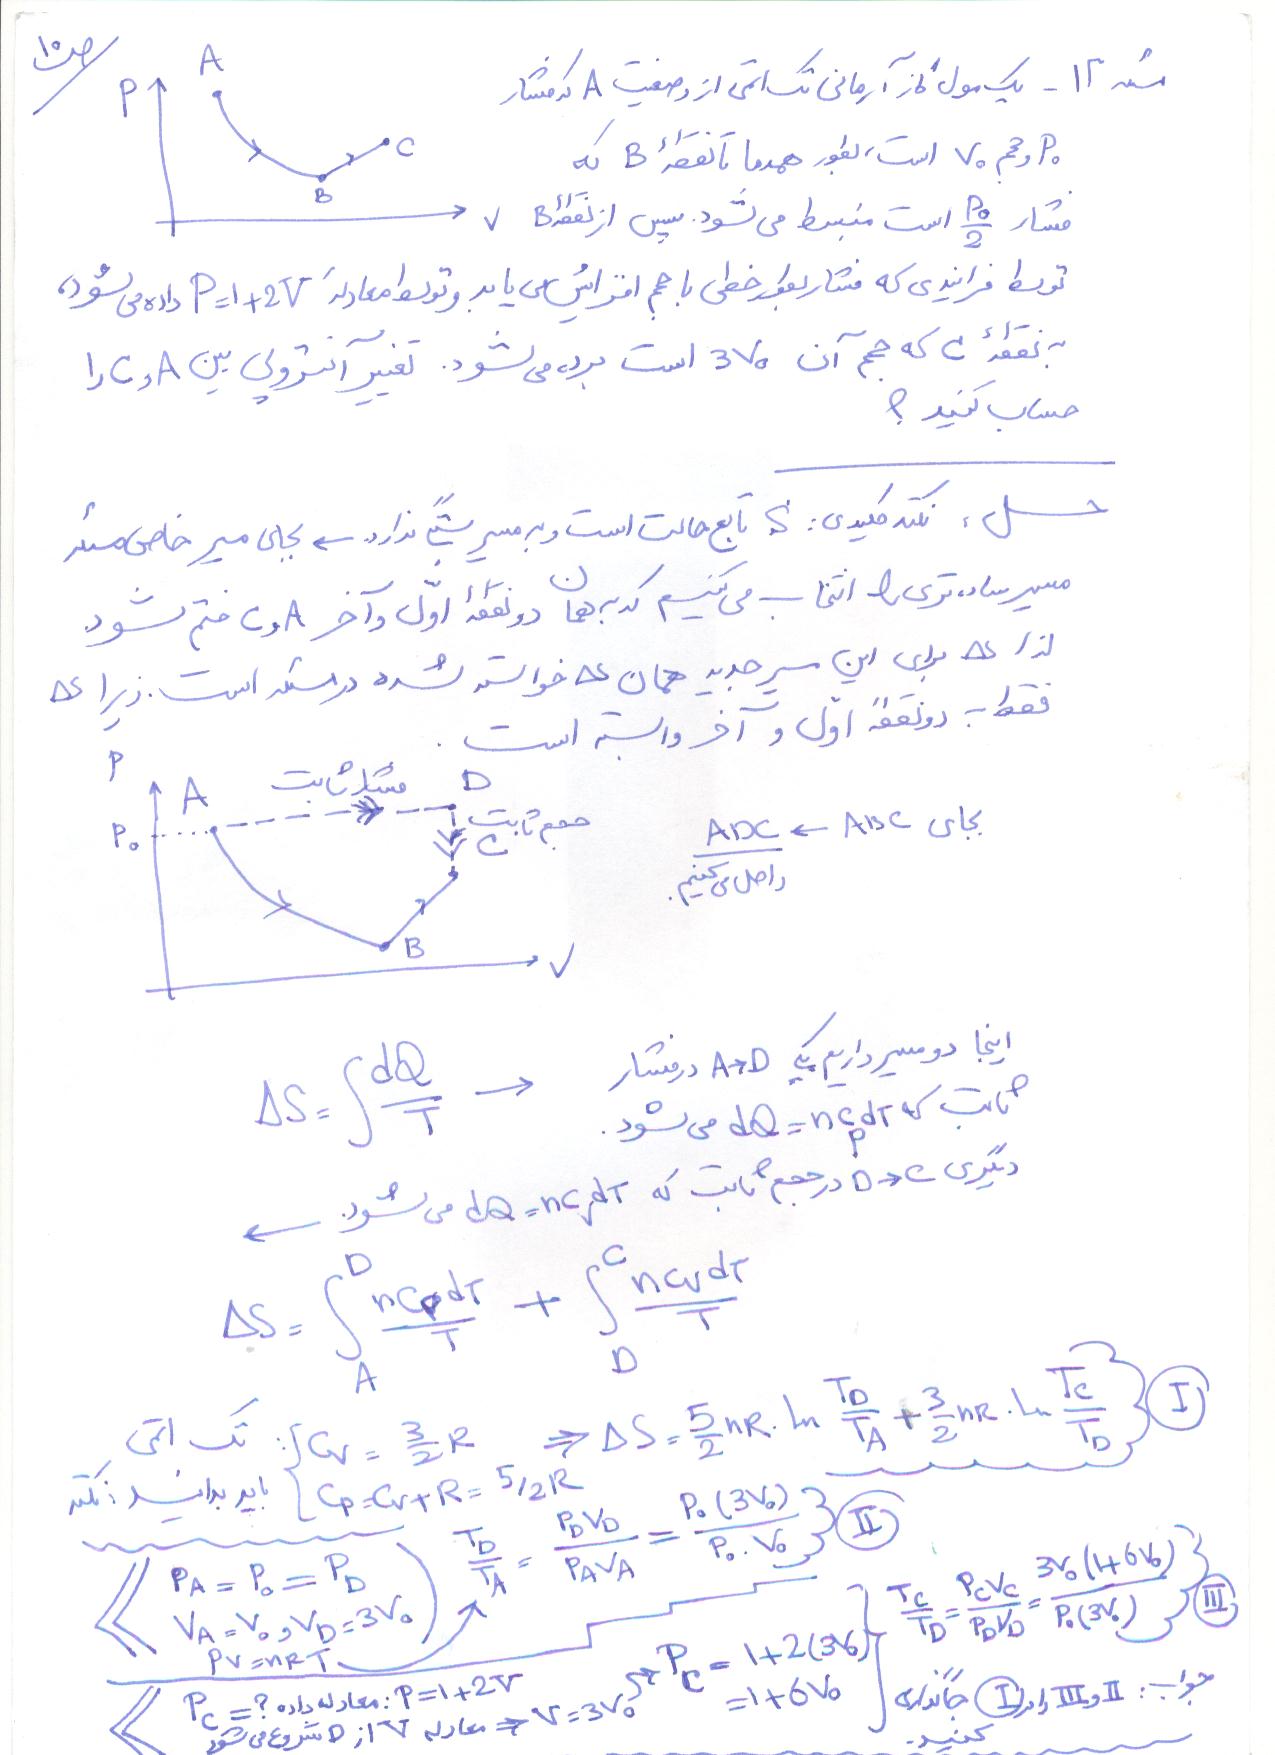 ص ۱۰
مسئله ۱۲ - یک مول گاز آرمانی تک اتمی از وضعیت A که فشار
P₀ و حجم V₀ است، بطور همدما تا نقطهٔ B که
فشار P₀/2 است منبسط می‌شود. سپس از نقطهٔ B
توسط فرایندی که فشار بطور خطی با حجم افزایش می یابد و توسط معادلهٔ P=1+2V داده می‌شود،
به نقطهٔ C که حجم آن 3V₀ است برده می‌شود. تغییر آنتروپی بین A و C را
حساب کنید؟
P
A
B
C
V
حل: نکته کلیدی: S تابع حالت است و به مسیر بستگی ندارد ← بجای مسیر خاص مسئله
مسیر ساده‌تری را انتخاب می‌کنیم که به همان دو نقطهٔ اوّل و آخر A و C ختم شود.
لذا ΔS برای این مسیر جدید همان ΔS خواسته شده در مسئله است. زیرا ΔS
فقط به دو نقطهٔ اوّل و آخر وابسته است.
P
P₀
A
فشار ثابت
D
حجم ثابت
C
B
V
بجای ABC ← ADC
را حل می‌کنیم.
اینجا دو مسیر داریم یکی A→D در فشار
ΔS = ∫ dQ/T →
ثابت که dQ = nCpdT می‌شود.
دیگری D→C در حجم ثابت که dQ = nCvdT می‌شود. ←
ΔS = ∫_A^D nCpdT/T + ∫_D^C nCvdT/T
تک اتمی : { Cv = 3/2 R ⇒ ΔS = 5/2 nR . ln T_D/T_A + 3/2 nR . ln T_C/T_D } I
باید بدانید : نکته { Cp = Cv + R = 5/2 R
T_D/T_A = P_D V_D / P_A V_A = P₀ (3V₀) / P₀ . V₀ } II
P_A = P₀ = P_D
V_A = V₀ و V_D = 3V₀
PV = nRT
T_C/T_D = P_C V_C / P_D V_D = 3V₀(1+6V₀) / P₀(3V₀) } III
P_C = ? معادله داده : P = 1+2V
معادله V ⇒ V = 3V₀
از D شروع می‌شود
P_C = 1+2(3V₀)
= 1+6V₀
جواب: II و III را در I جاگذاری
کنید.